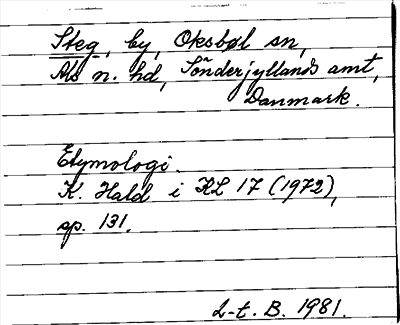 Steg, by, Oksbøl sn,
Als n. hd, Sönderjyllands amt,
Danmark.
Etymologi.
K. Hald i KL 17 (1972),
sp. 131.
2-t. B. 1981.